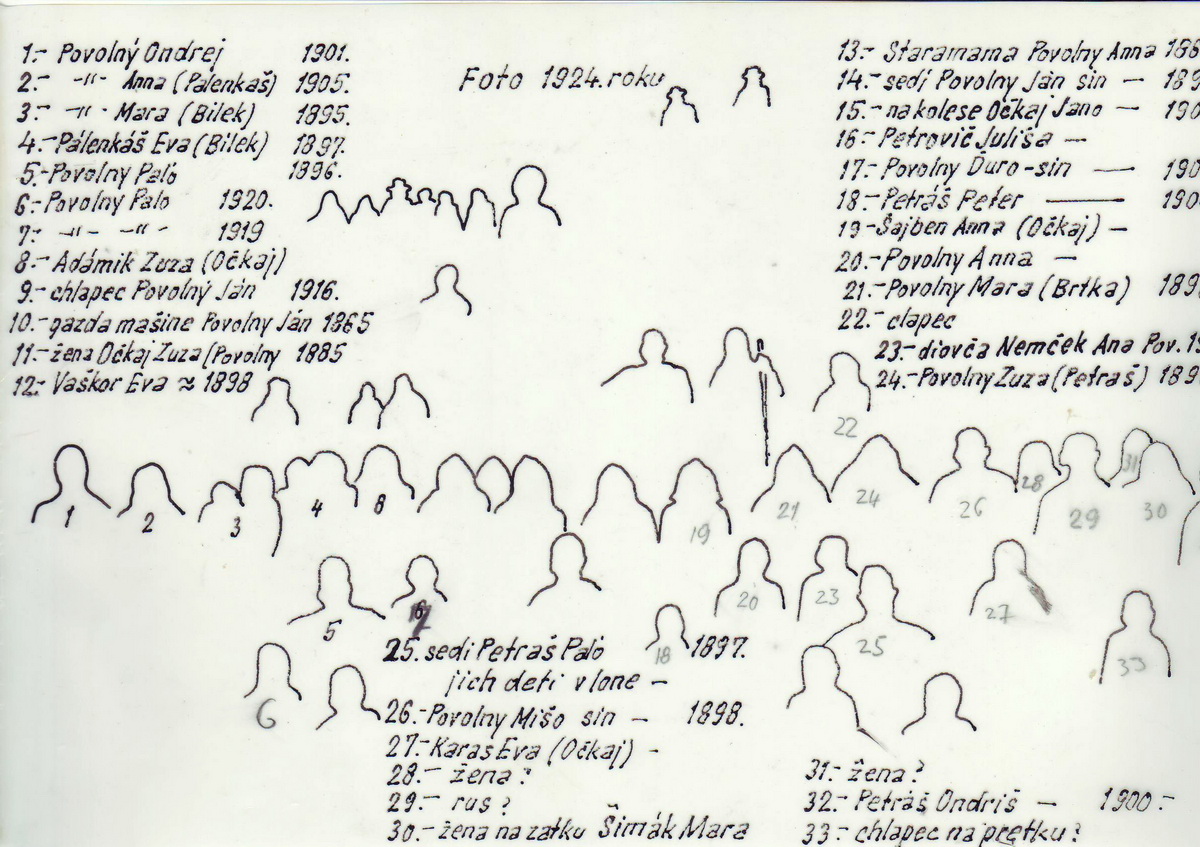 1.- Povolný Ondrej 1901.
2.- -"- Anna (Pálenkaš) 1905.
3.- -"- Mara (Bilek) 1895.
4.- Pálenkáš Eva (Bílek) 1897.
5.- Povolny Paĺo 1896.
6.- Povolny Palo 1920.
7.- -"- -"- 1919
8.- Adámik Zuza (Očkaj)
9.- chlapec Povolný Ján 1916.
10.- gazda mašine Povolny Ján 1865
11.- žena Očkaj Zuza (Povolny 1885
12.- Vaškor Eva ≈ 1898
Foto 1924. roku
13.- Staramama Povolny Anna 186
14.- sedí Povolny Ján sin - 189
15.- na kolese Očkaj Jano - 190
16.- Petrovič Juliša -
17.- Povolny Ďuro - sin - 190
18.- Petráš Peter - 190
19- Šajben Anna (Očkaj) -
20.- Povolny Anna -
21.- Povolny Mara (Brtka) 189
22.- clapec
23.- diovča Nemček Ana Pov. 19
24.- Povolny Zuza (Petraš) 189
22
1 2 3 4 8 19 21 24 26 28 29 31 30
5 16 20 23 27
18 25 33
6
25. sedi Petraš Paĺo 1897.
jich deti v lone -
26.- Povolny Mišo sin - 1898.
27.- Karas Eva (Očkaj) -
28.- žena?
29.- rus?
30.- žena na zatku Šimák Mara
31.- žena?
32.- Petráš Ondriš - 1900.-
33.- chlapec na prętku?